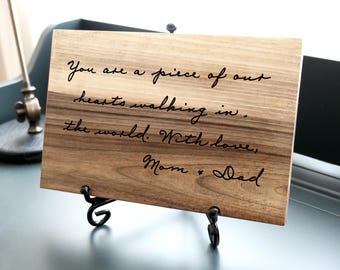 You are a piece of our
hearts walking in.
the world. With love,
Mom & Dad